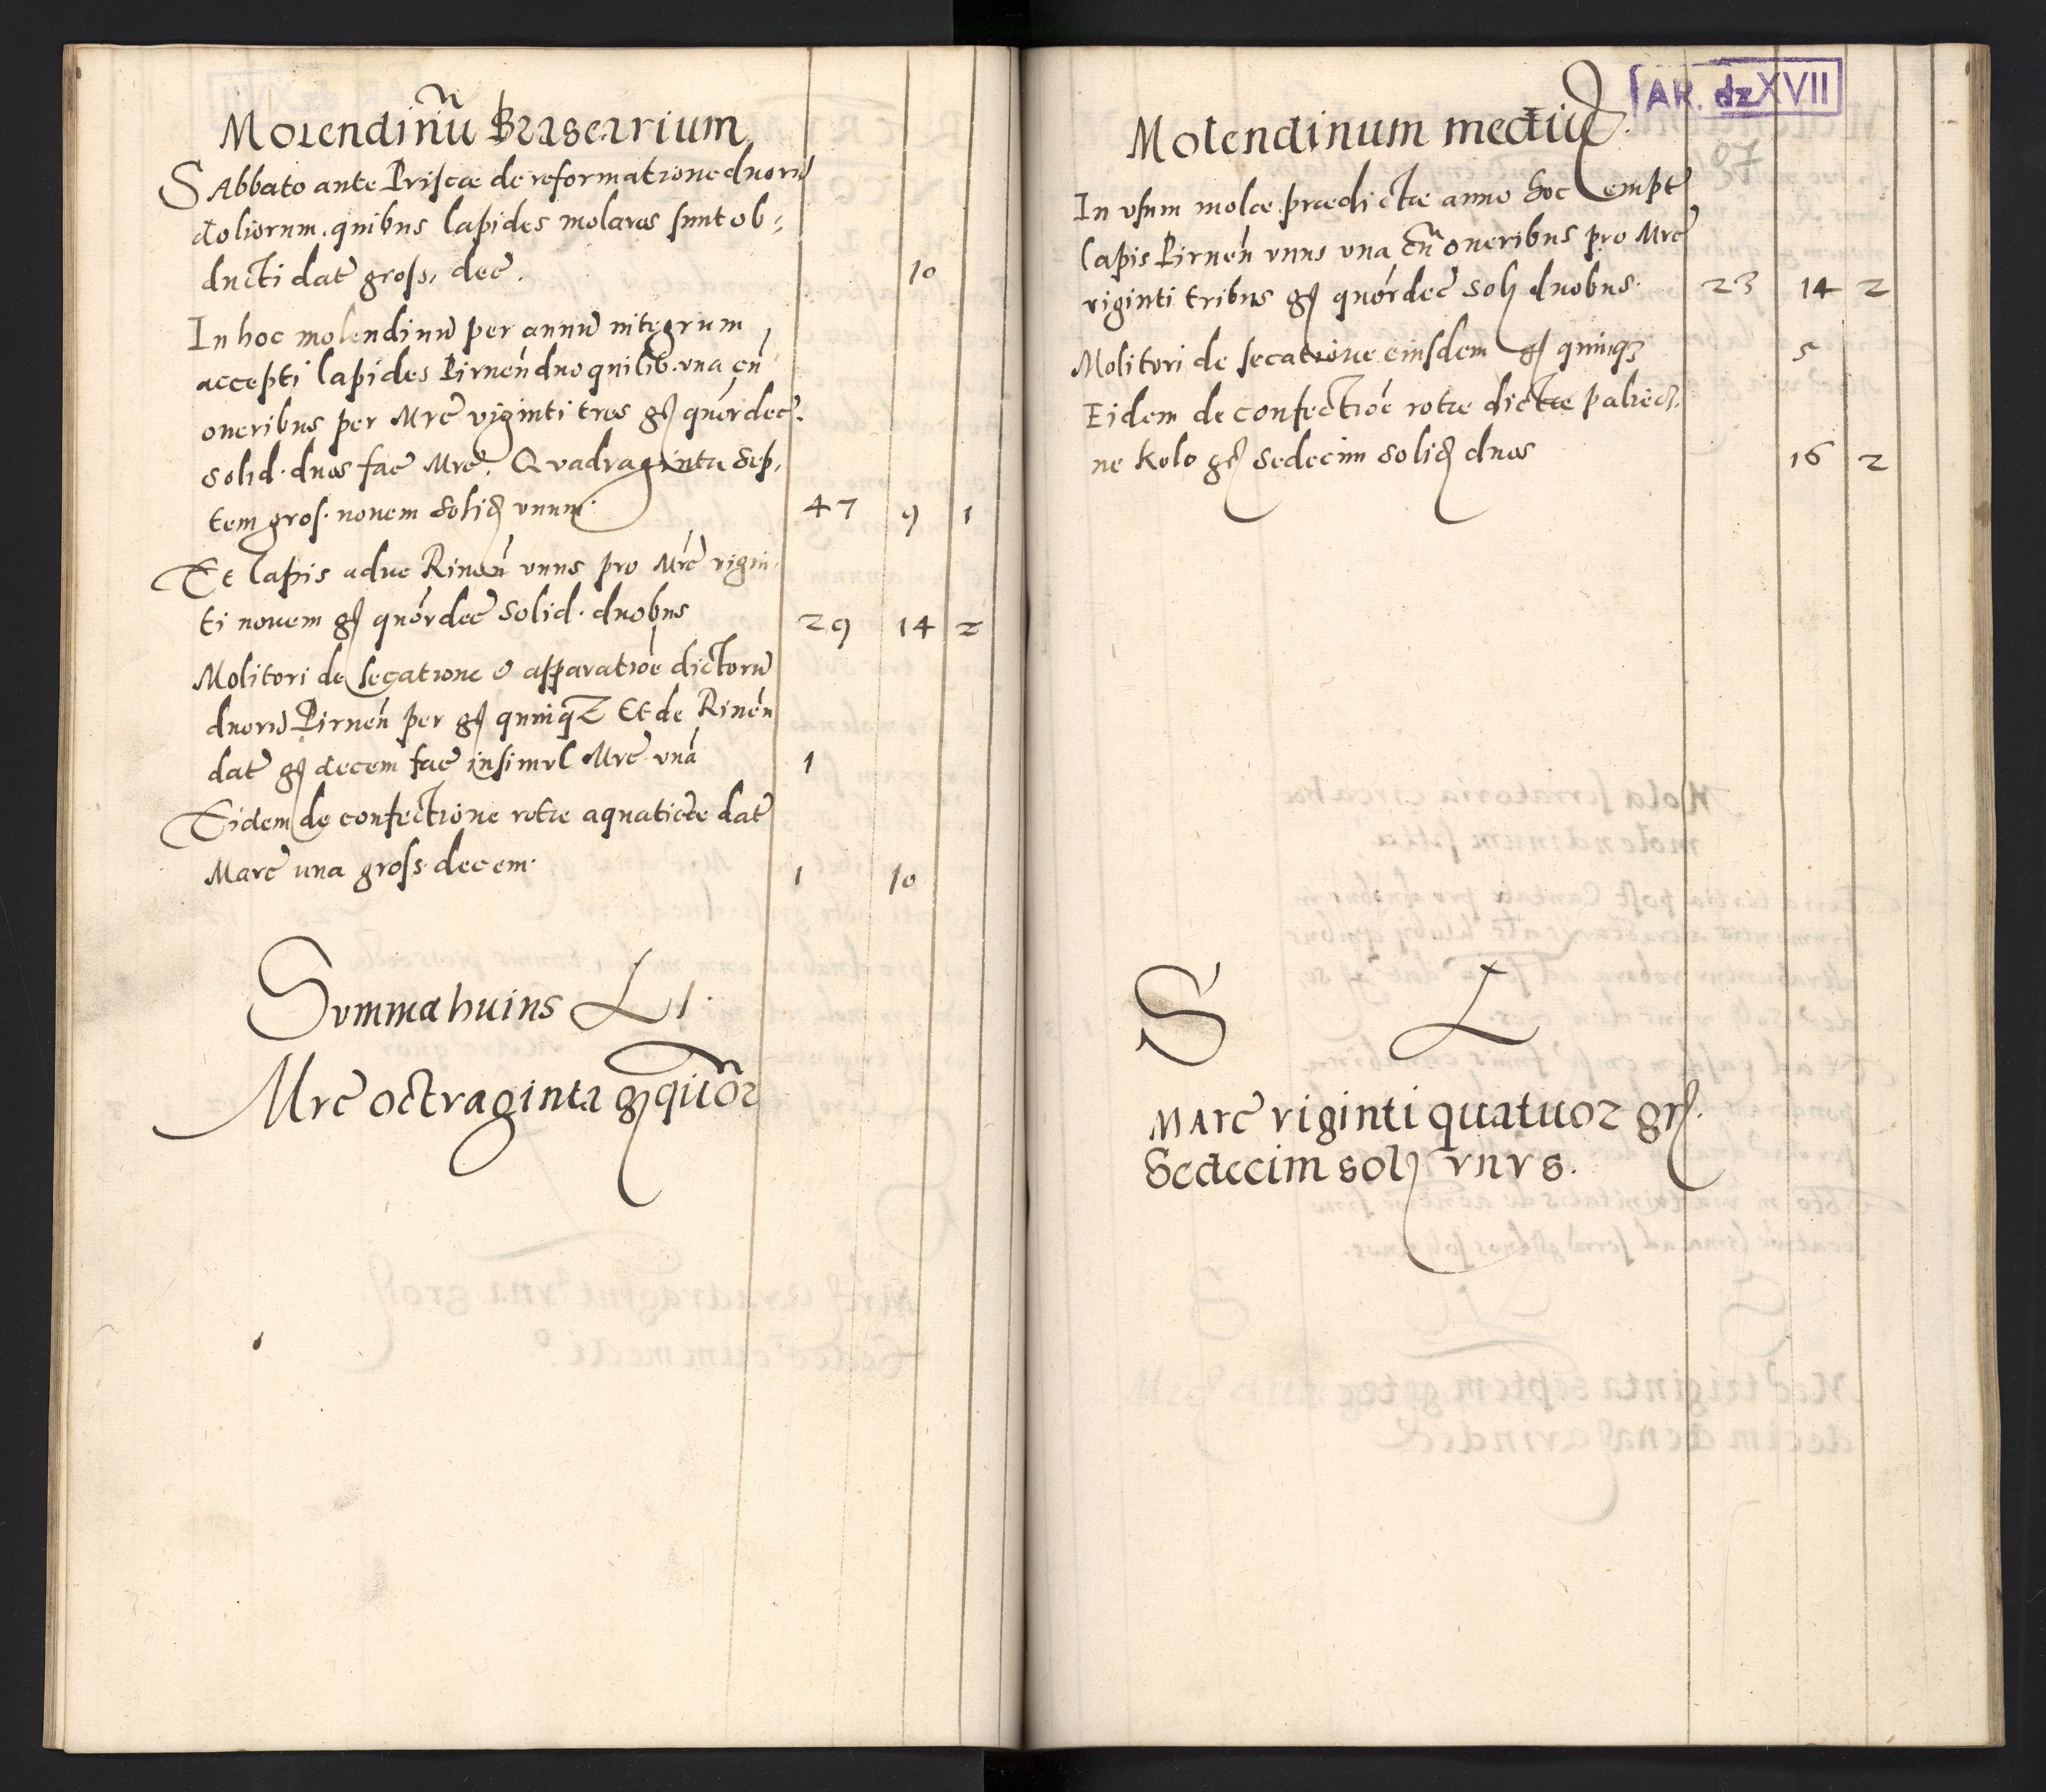 Molendinū Braseatrium
SAbbato ante Priscæ de reformatione duorū
doliorum. quibus lapides molares sunt ob:
ducti dat gross. dec.
10
In hoc molendinū per annū integrum
accepti lapides Pirnen duo quilib. una cū
oneribus per Mrc viginti tres gͬ quordec.
solid. duos fac Mrc. Quadraginta sep,
tem gros. novem solid unum.
47 9 1
Et lapis aduc Rinen unus pro Mrc vigin,
ti novem gͬ quordec solid. duobus
29 14 2
Molitori de secatione & apparatioe dictorū
duorū Pirnen per gͬ quinqz Et de Rinen
dat gͬ decem fac insimul Mrc unā
1
Eidem de confectione rotæ aquaticæ dat
Marc una gross. decem.
1 10
Summa huius L 1.
Mrc octraginta gͬ quor
AR. dz XVII
Molendinum mediū.
107
In usum molæ prædictæ anno hoc empt
lapis Pirnen unus una cū oneribus pro Mrc
viginti tribus gͬ quordec sol duobus.
23 14 2
Molitori de secatione eiusdem gͬ quinqz
5
Eidem de confectioe rotæ dictæ paliecz,
ne kolo gͬ sedecim solid duos
16 2
S L
MARC viginti quatuor gr.
Sedecim sol unus.